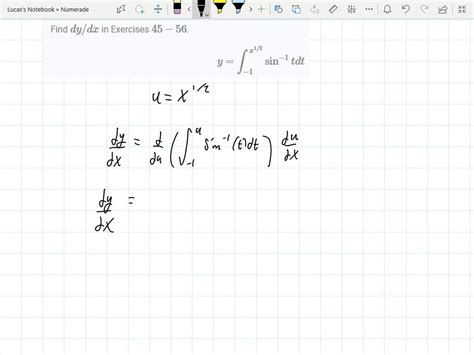 Lucas's Notebook » Numerade
Find dy/dx in Exercises 45 − 56.
y = ∫_{-1}^{x^{1/2}} sin^{-1} t dt
u = x^{1/2}
dy/dx = d/du (∫_{-1}^{u} sin^{-1}(t) dt) du/dx
dy/dx =